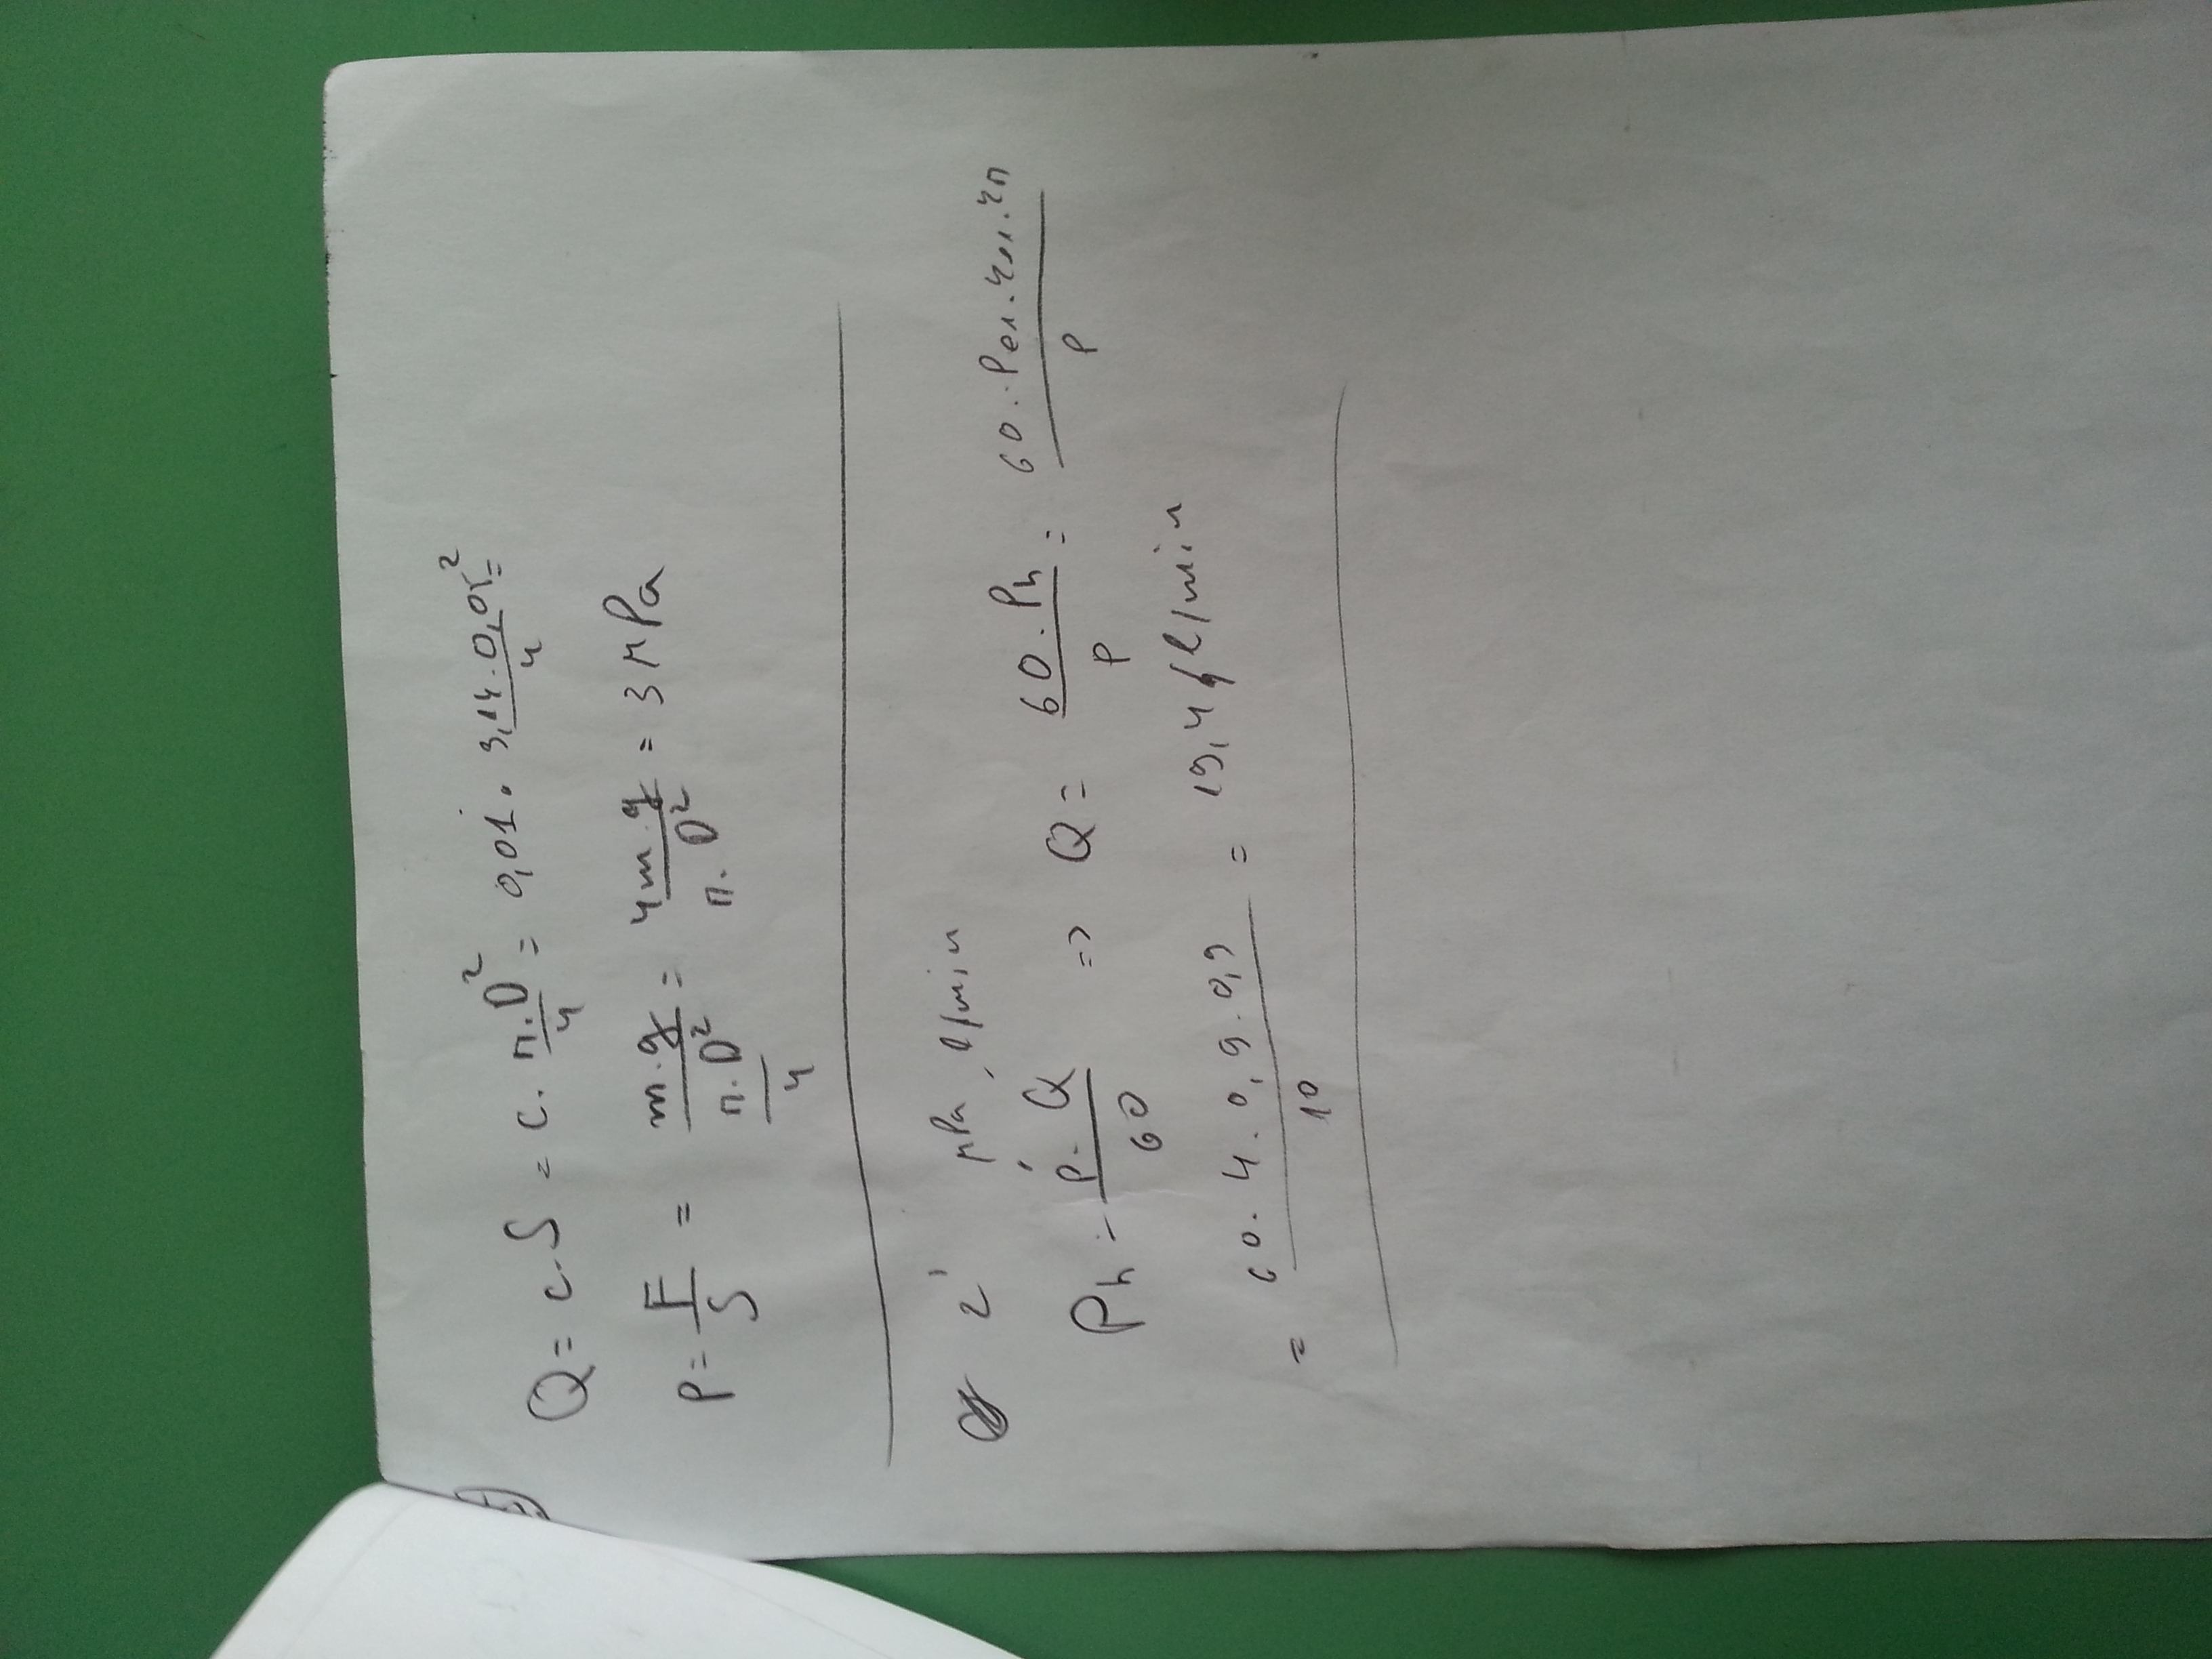 Q = c.S = c. п.D²/4 = 0,01 . 3,14.0,05²/4 =
P = F/S = m.g/(п.D²/4) = 4m.g/п.D² = 3 MPa
2' MPa, l/min
Ph = P.Q/60 => Q = 60.Ph/P = 60.Pел.
= 60.4.0,9.0,9/10 = 19,4 l/min